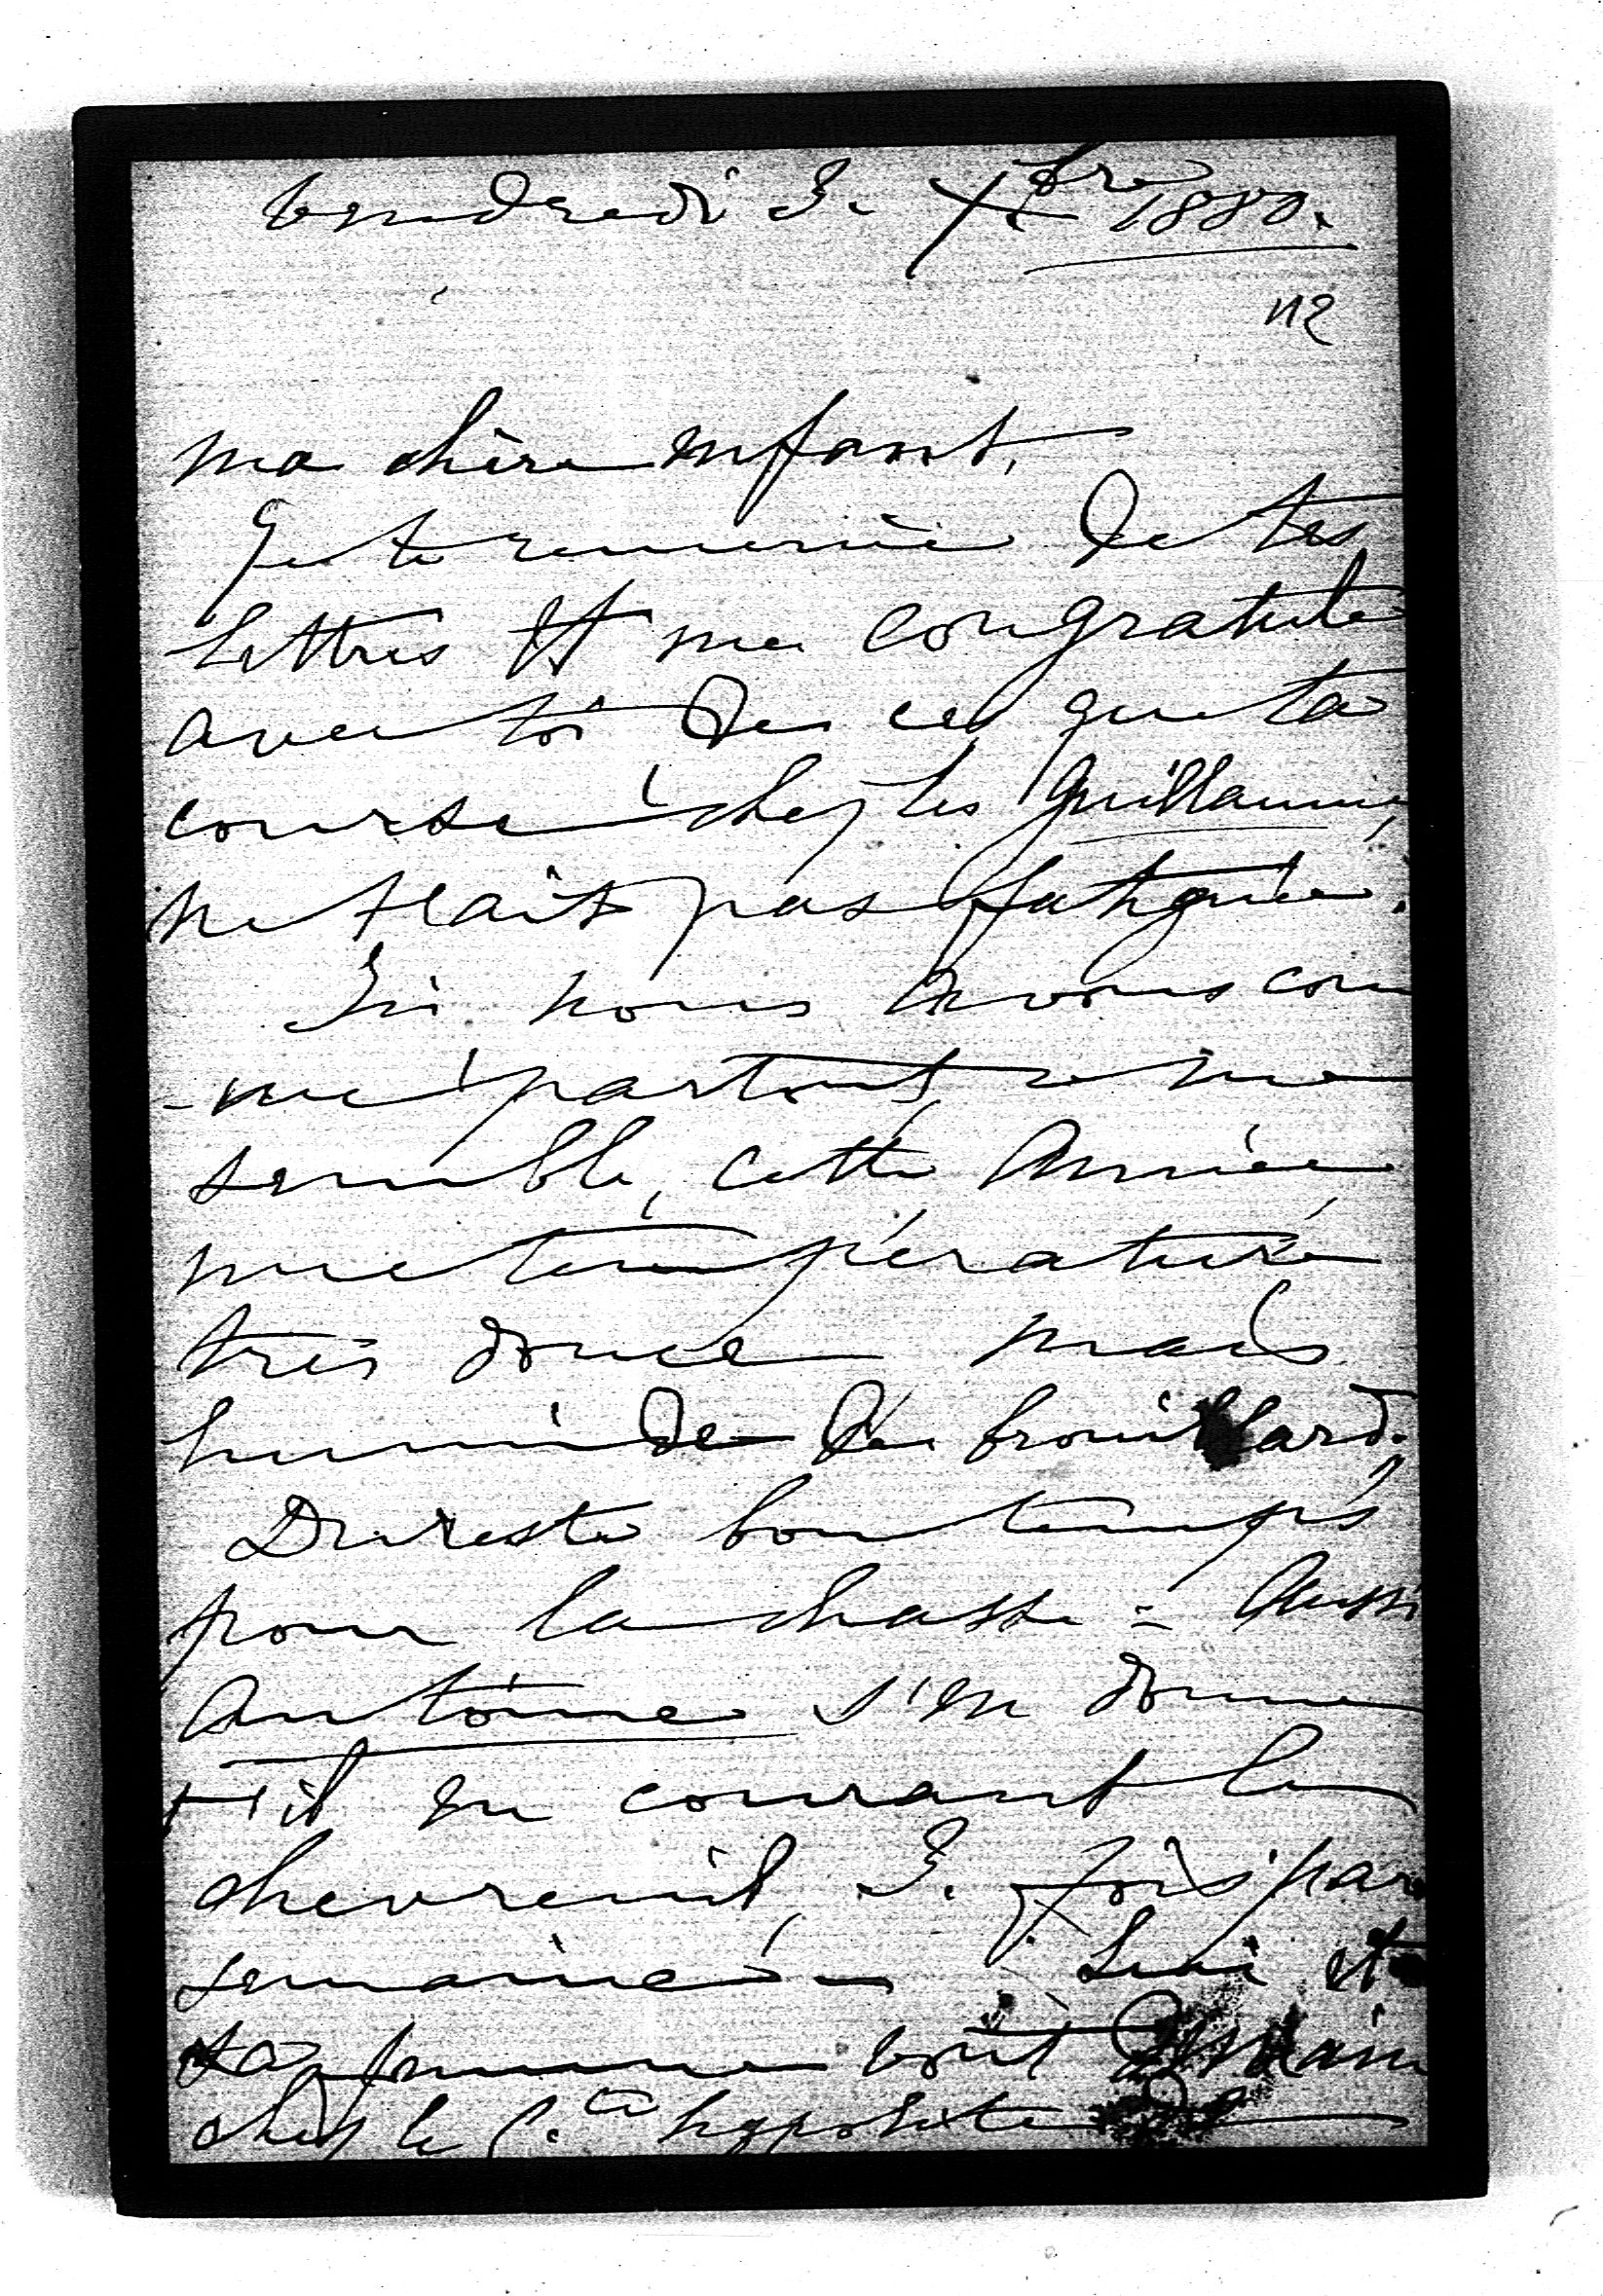 Vendredi 3. Xbre 1880.
112
Ma chère enfant,
Je te remercie de tes
lettres et me congratule
avec toi de ce que ta
course chez les Guillaume,
ne t'ait pas fatiguée.
Ici nous avons com
-me partout, ce me
semble, cette année,
une température
très douce mais
humide de brouillard.
Du reste bon temps
pour la chasse = Aussi
Antoine s'en donne
t-il en courant le
chevreuil, 3. fois par
semaine = Lui et
sa femme vont demain
chez le C.te hypolite de